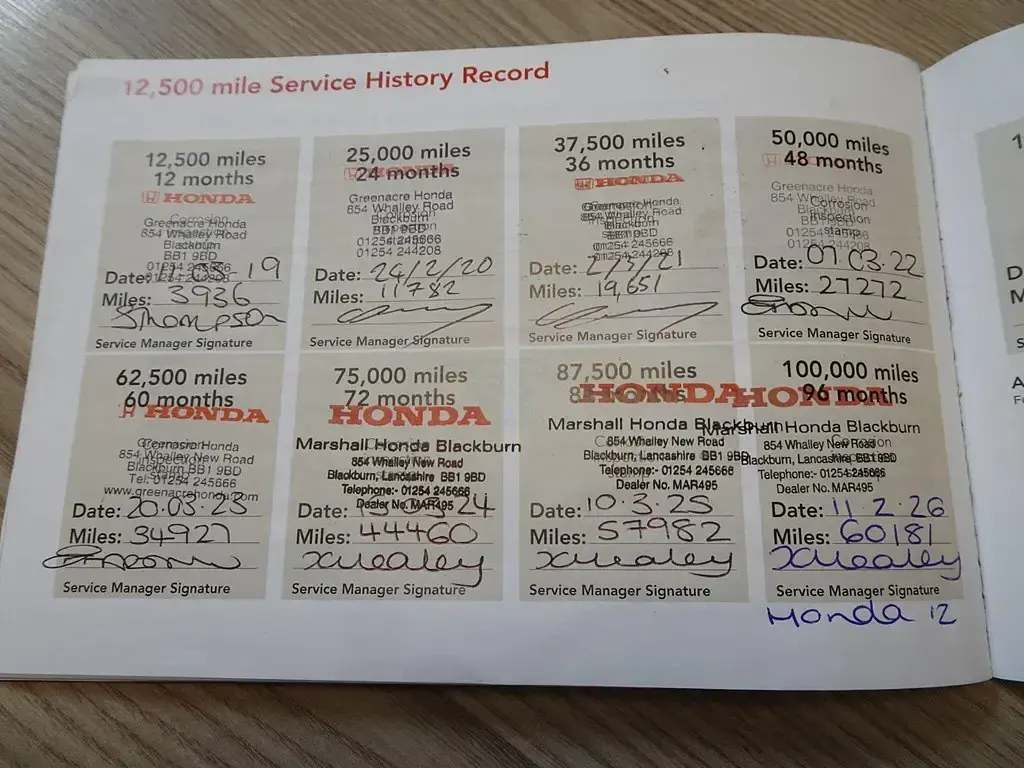 12,500 mile Service History Record
12,500 miles
12 months
HONDA
Corrosion
Greenacre Honda
854 Whalley Road
Blackburn
BB1 9BD
01254 245666
01254 244208
Date: 19
Miles: 3936
SThompson
Service Manager Signature
25,000 miles
24 months
HONDA
Greenacre Honda
854 Whalley Road
Blackburn
BB1 9BD
01254 245666
01254 244208
Date: 24/2/20
Miles: 11782
Service Manager Signature
37,500 miles
36 months
HONDA
Greenacre Honda
854 Whalley Road
Blackburn
BB1 9BD
01254 245666
01254 244208
Date: 2/3/21
Miles: 19,651
Service Manager Signature
50,000 miles
48 months
Greenacre Honda
854 Whalley Road
Corrosion
inspection
stamp
01254 245666
01254 244208
Date: 07 03.22
Miles: 27272
Service Manager Signature
62,500 miles
60 months
HONDA
Greenacre Honda
854 Whalley New Road
Blackburn BB1 9BD
Tel: 01254 245666
www.greenacrehonda.com
Date: 20.03.23
Miles: 34927
Service Manager Signature
75,000 miles
72 months
HONDA
Marshall Honda Blackburn
854 Whalley New Road
Blackburn, Lancashire BB1 9BD
Telephone:- 01254 245666
Dealer No. MAR495
Date: 24
Miles: 44460
Service Manager Signature
87,500 miles
months
HONDA
Marshall Honda Blackburn
854 Whalley New Road
Blackburn, Lancashire BB1 9BD
Telephone:- 01254 245666
Dealer No. MAR495
Date: 10.3.25
Miles: 57982
Service Manager Signature
100,000 miles
96 months
HONDA
Marshall Honda Blackburn
854 Whalley New Road
Blackburn, Lancashire BB1 9BD
Telephone:- 01254 245666
Dealer No. MAR495
Date: 11.2.26
Miles: 60181
Service Manager Signature
Honda 12